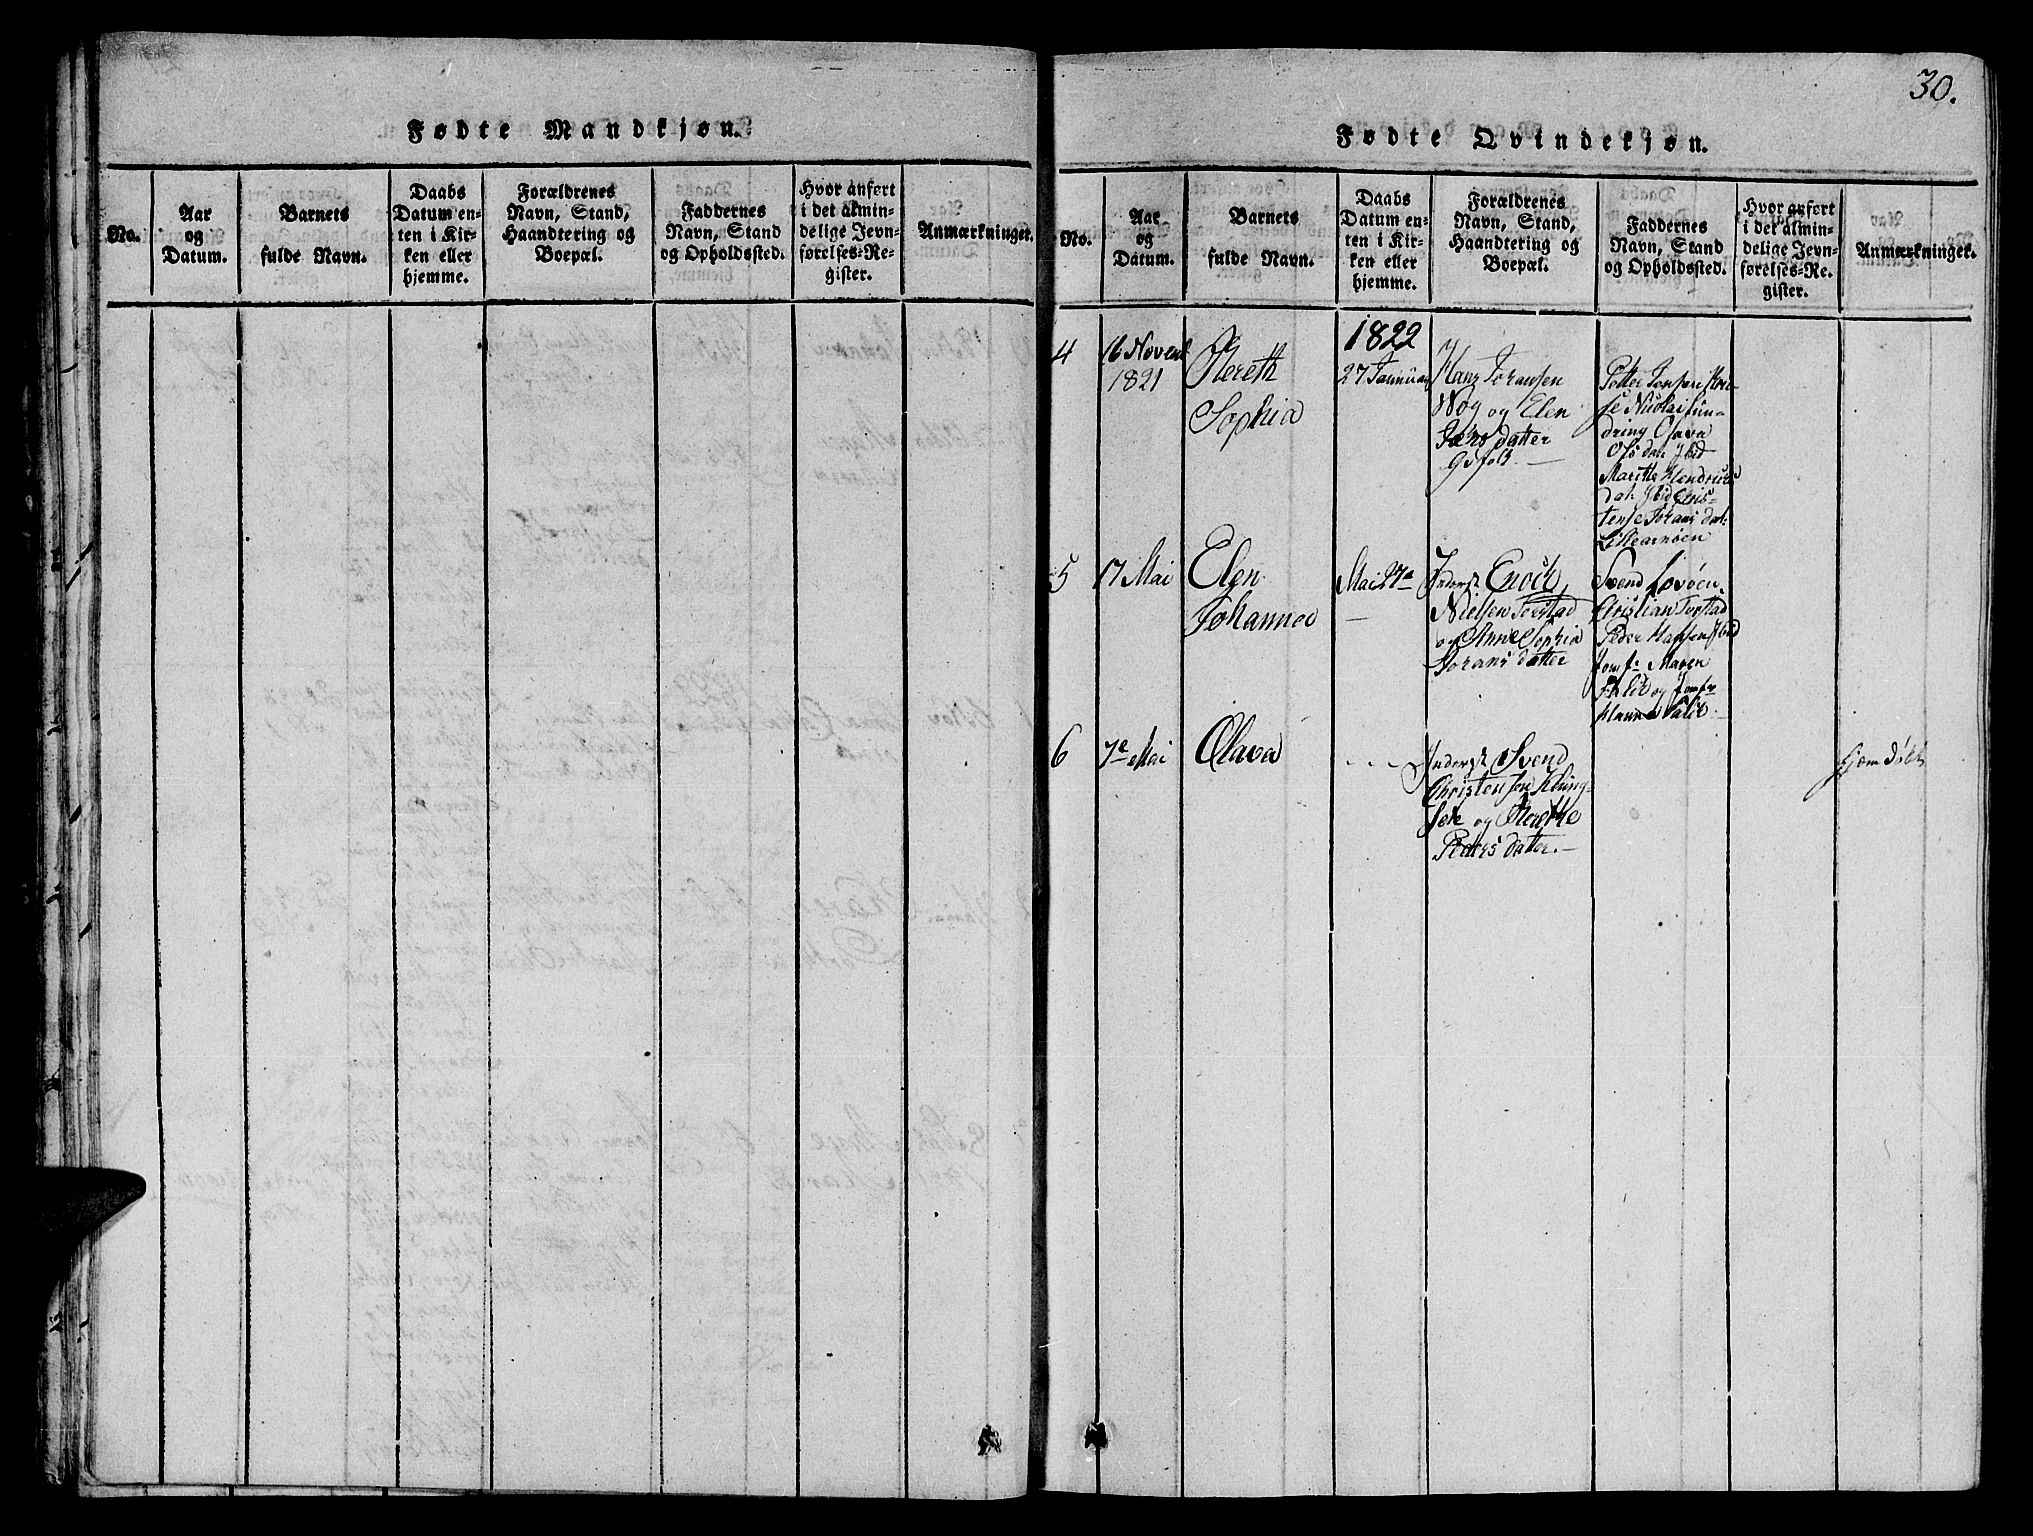 30.
Fødte Mandkjøn.
No.
Aar
og
Datum.
Barnets
fulde Navn.
Daabs
Datum en-
ten i Kir-
ken eller
hjemme.
Forældrenes
Navn, Stand,
Haandtering og
Boepæl.
Faddernes
Navn, Stand
og Opholdssted.
Hvor anført
i det almin-
delige Jevn-
førelses-Re-
gister.
Anmærkninger.
Fødte Qvindekjøn.
No.
Aar
og
Datum.
Barnets
fulde Navn.
Daabs
Datum en-
ten i Kir-
ken eller
hjemme.
Forældrenes
Navn, Stand,
Haandtering og
Boepæl.
Faddernes
Navn, Stand
og Opholdssted.
Hvor anført
i det almin-
delige Jevn-
førelses-Re-
gister.
Anmærkninger.
4
16 Novem
1821
Bereth
Sophia
1822
27 Januar
Hans Johansen
Wog og Elen
datter
Petter
Nicolai Sun-
dring Olava
Ols dat Ibid
Marithe Hendrichs
dat Ibid Chris-
tense Johans dat
5
17 Mai
Elen
Johanna
Mai 27de
Inderst Enoch
Nielsen
og Anne Sophia
Johans datter
Svend Lovöen
Christian
Peder Hansen Ibid
Jomfr Maren
Falch og Jomfr
Hanna Falch
6
7e Mai
Olava
Inderst Svend
Christensen Kling-
og Berethe
Peders datter.
hjemdøbt